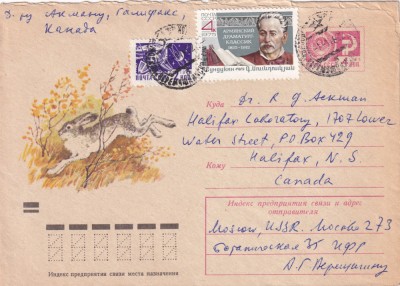 Д-ру Акману, Галифакс,
Канада
АРМЯНСКИЙ
ДРАМАТУРГ
КЛАССИК
ПОЧТА
4
Куда Dr. R. G. Ackman
Halifax Laboratory, 1707 Lower
Water Street, PO Box 429
Кому Halifax, N. S.
Canada
Индекс предприятия связи и адрес
отправителя
Moscow, USSR. Москва 273
Ботаническая
Индекс предприятия связи места назначения